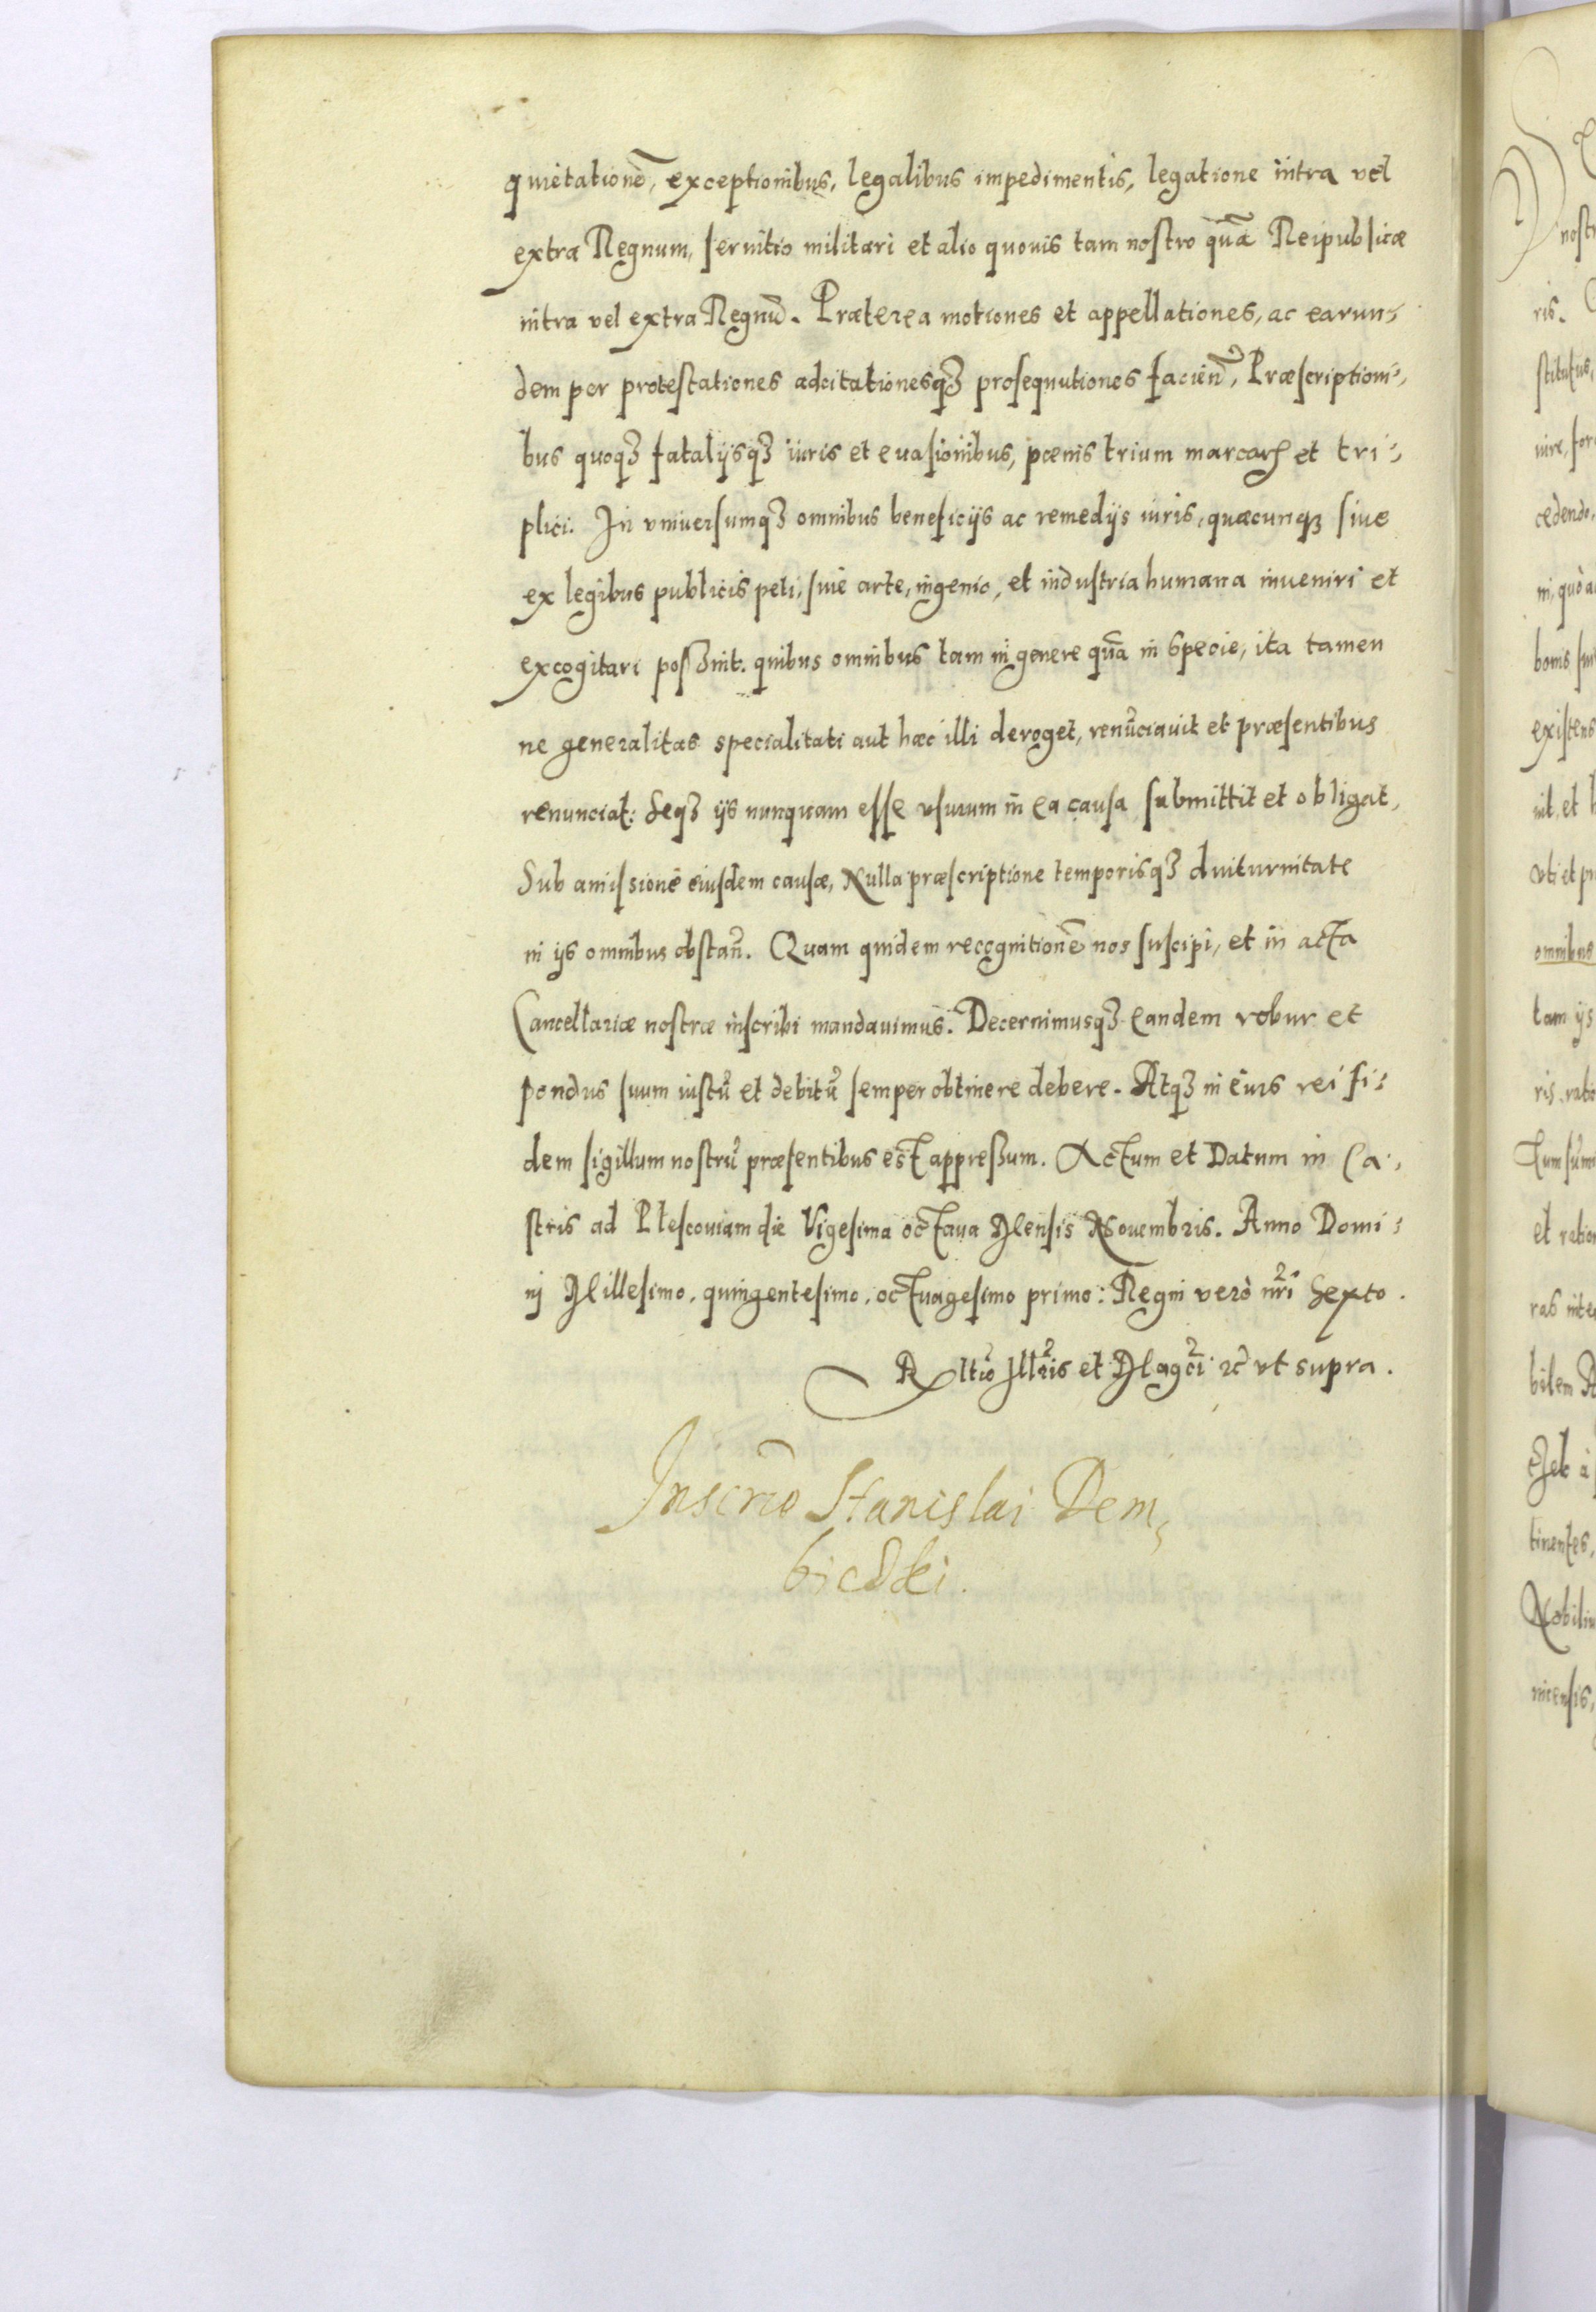 quietatione, exceptionibus, legalibus impedimentis, legatione intra vel
extra Regnum, seruitio militari et alio quouis tam nostro quā Reipublicæ
intra vel extra Regnū. Præterea motiones et appellationes, ac earun-
dem per protestationes adcitationesqʒ prosequutiones facien̄, Præscriptioni-
bus quoqʒ fatalijsqʒ iuris et euasionibus, pœnis trium marcarꝝ et tri-
plici. In vniuersumqʒ omnibus beneficijs ac remedijs iuris, quæcunqʒ siue
ex legibus publicis peti, siue arte, ingenio, et industria humana inueniri et
excogitari possunt. quibus omnibus tam in genere quā in specie, ita tamen
ne generalitas specialitati aut hæc illi deroget, renūciauit et præsentibus
renunciat: Seqʒ ijs nunquam esse vsurum in ea causa submittit et obligat,
Sub amissione eiusdem causæ, Nulla præscriptione temporisqʒ diuturnitate
in ijs omnibus obstan̄. Quam quidem recognitionē nos suscipi, et in acta
Cancellariæ nostræ inscribi mandauimus. Decernimusqʒ eandem robur et
pondus suum iustū et debitū semper obtinere debere. Atqʒ in eius rei fi-
dem sigillum nostrū præsentibus est appressum. Actum et Datum in Ca-
stris ad Plescouiam die Vigesima octaua Mensis Nouembris. Anno Domi-
nj Millesimo, quingentesimo, octuagesimo primo: Regni verò nr̄i Sexto.
Rltio Illris et Magci ꝛc̄ vt supra.
Inscrio Stanislai Dem,
bicski.
nostr
ris.
stitutus,
cedendo,
existens
omnibus
tam ijs
tinentes,